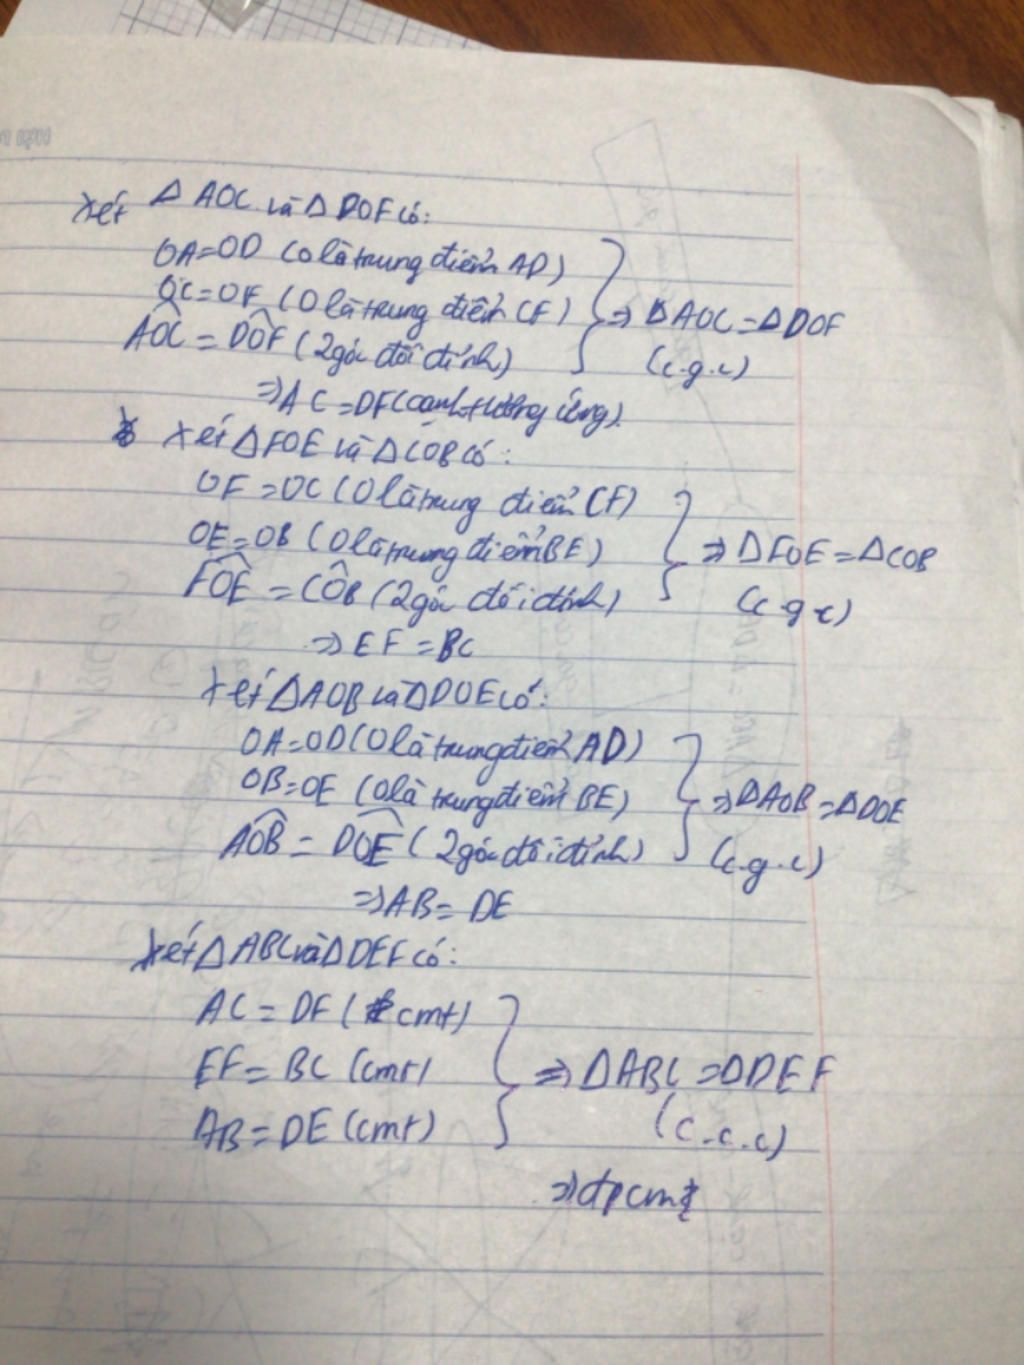 Xét Δ AOC và Δ DOF có:
OA=OD (O là trung điểm AD)
OC=OF (O là trung điểm CF) ⇒ ΔAOC=ΔDOF
AOC = DOF (2 góc đối đỉnh) (c.g.c)
⇒ AC=DF (cạnh tương ứng).
Xét ΔFOE và ΔCOB có:
OF=OC (O là trung điểm CF)
OE=OB (O là trung điểm BE) ⇒ ΔFOE=ΔCOB
FOE = COB (2 góc đối đỉnh) (c g c)
⇒ EF=BC
Xét ΔAOB và ΔDOE có:
OA=OD (O là trung điểm AD)
OB=OE (O là trung điểm BE) ⇒ ΔAOB=ΔDOE
AOB = DOE (2 góc đối đỉnh) (c.g.c)
⇒ AB= DE
Xét ΔABC và ΔDEF có:
AC = DF (cmt)
EF= BC (cmt) ⇒ ΔABC=ΔDEF
AB=DE (cmt) (c.c.c)
⇒ đpcm